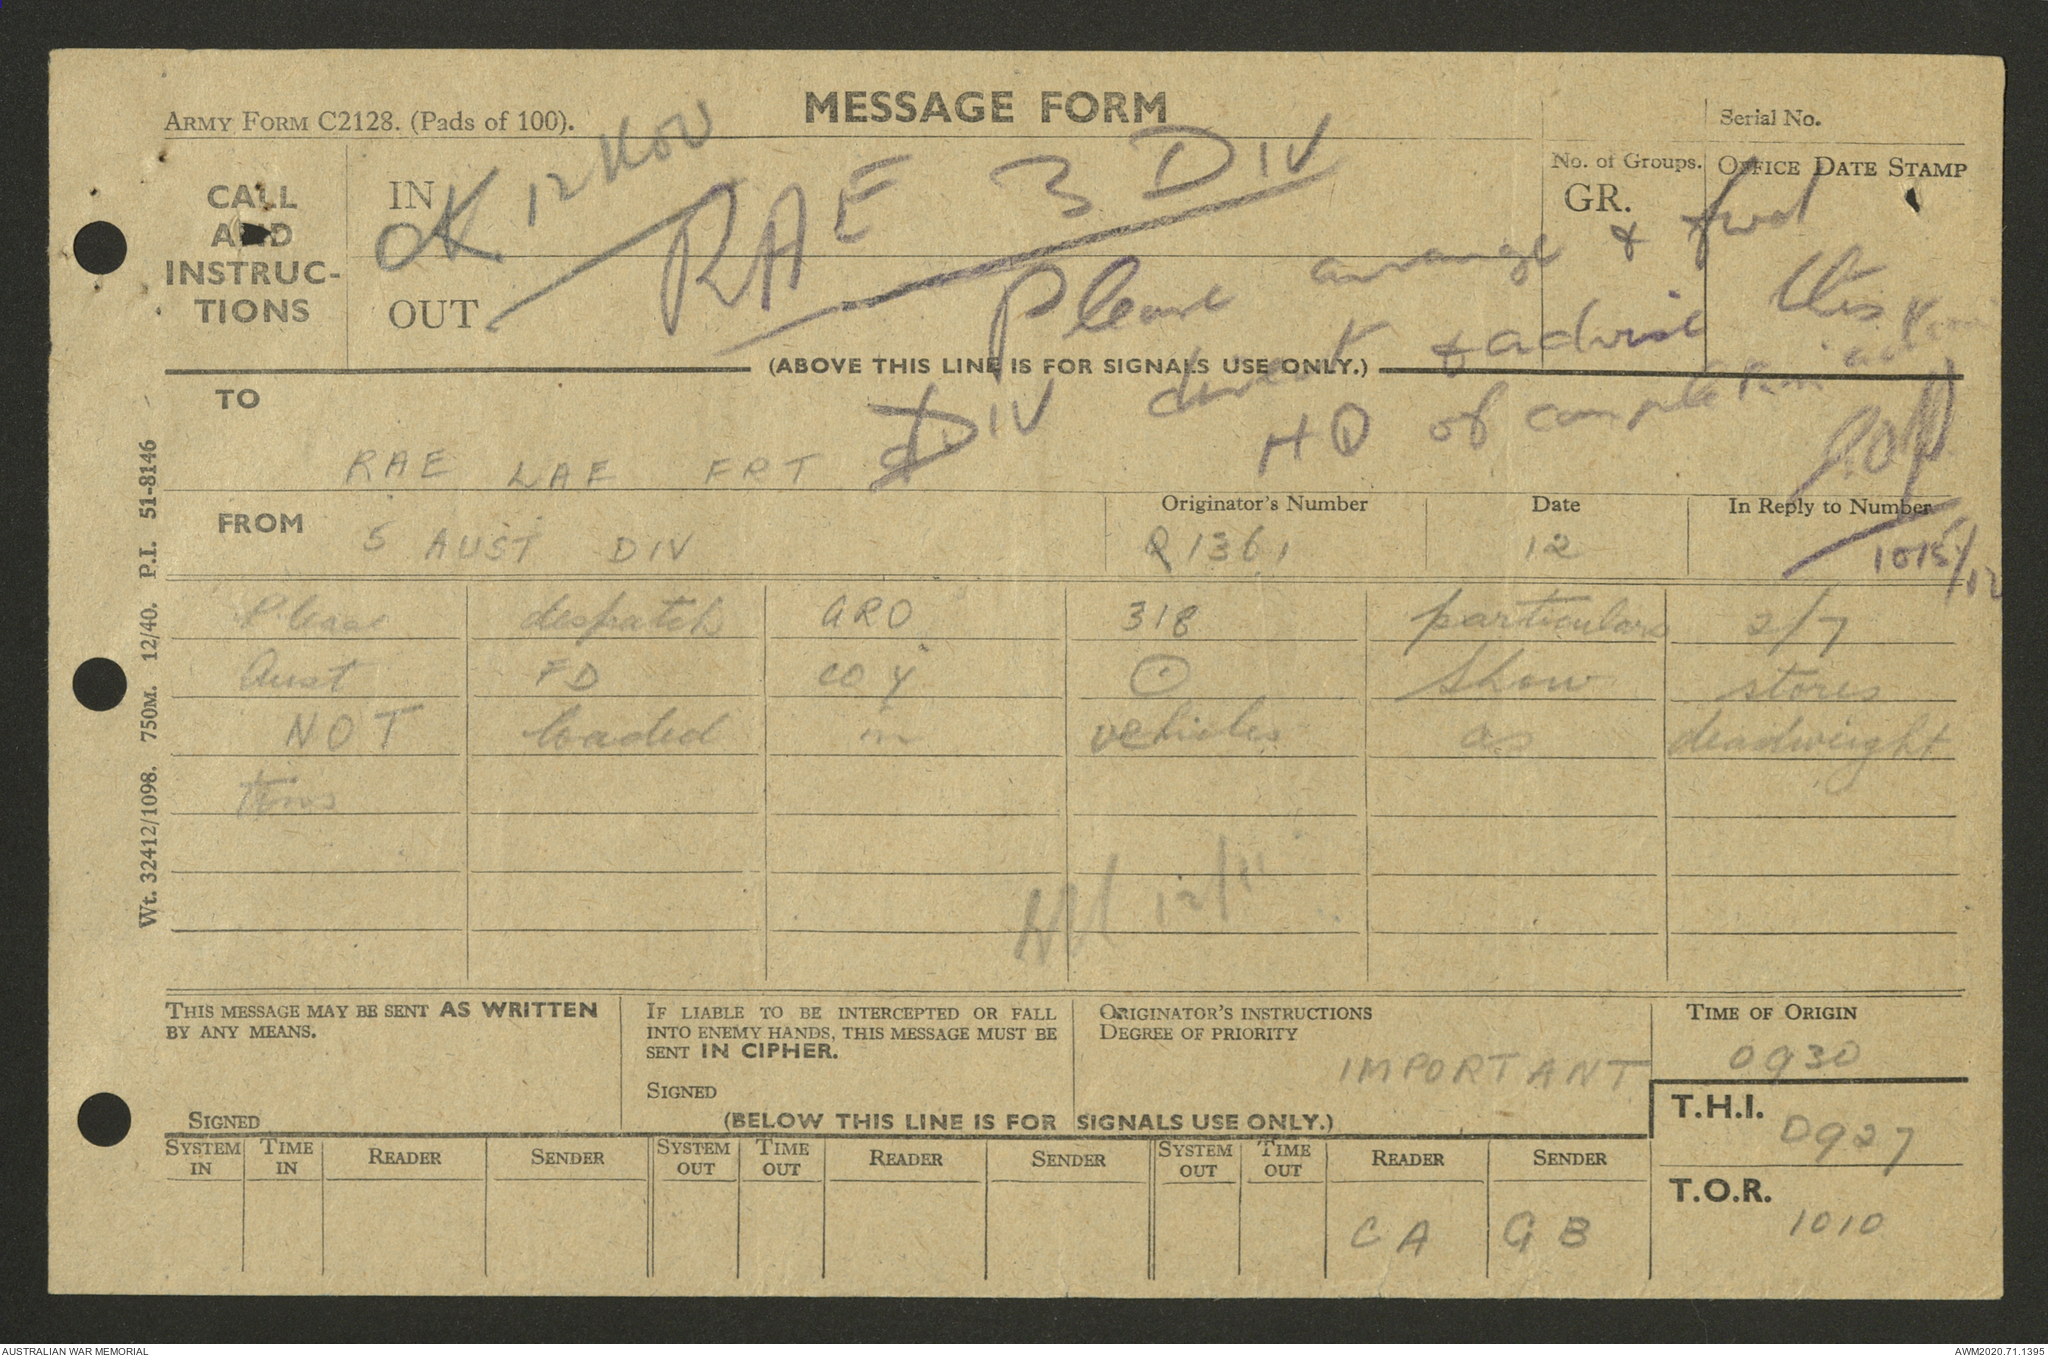 MESSAGE FORM
ARMY FORM C2128. (Pads of 100).
Serial No.
CALL AND INSTRUC-TIONS
IN
OUT
No. of Groups.
GR.
OFFICE DATE STAMP
OK 12 Nov
RAE 3 DIV
Please arrange & fwd
direct & advise this
DIV HQ of completion
(ABOVE THIS LINE IS FOR SIGNALS USE ONLY.)
TO
RAE LAE
FROM
5 AUST DIV
Originator's Number
Q1361
Date
12
In Reply to Number
1015/12
Please despatch ARO 318 particulars 2/7
Aust FD COY ① show stores
NOT loaded in vehicles as deadweight
tons
12/11
Wt. 32412/1098. 750M. 12/40. P.I. 51-8146
THIS MESSAGE MAY BE SENT AS WRITTEN
BY ANY MEANS.
SIGNED
IF LIABLE TO BE INTERCEPTED OR FALL
INTO ENEMY HANDS, THIS MESSAGE MUST BE
SENT IN CIPHER.
SIGNED
ORIGINATOR'S INSTRUCTIONS
DEGREE OF PRIORITY
IMPORTANT
TIME OF ORIGIN
0930
(BELOW THIS LINE IS FOR SIGNALS USE ONLY.)
T.H.I.
0927
T.O.R.
1010
SYSTEM IN TIME IN READER SENDER SYSTEM OUT TIME OUT READER SENDER SYSTEM OUT TIME OUT READER SENDER
CA GB
AUSTRALIAN WAR MEMORIAL
AWM2020.71.1395